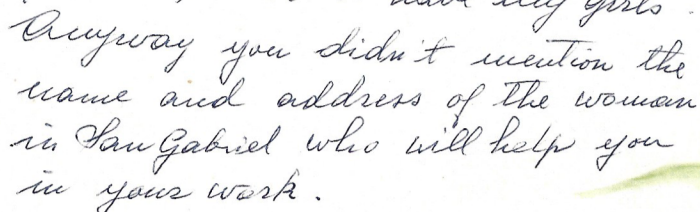 have my girls
Anyway you didn't mention the
name and address of the woman
in San Gabriel who will help you
in your work.